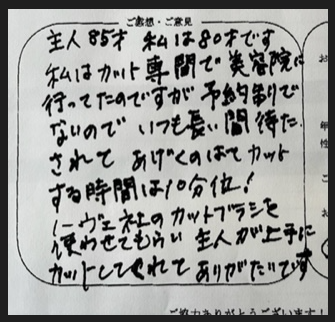 ご感想・ご意見
主人85才 私は80才です
私はカット専門で美容院に
行ってたのですが予約制で
ないのでいつも長い間待た
されてあげくのはてカット
する時間は10分位!
イーヴェ社のカットブラシを
使わせてもらい主人が上手に
カットしてくれてありがたいです
ご協力ありがとうございます!